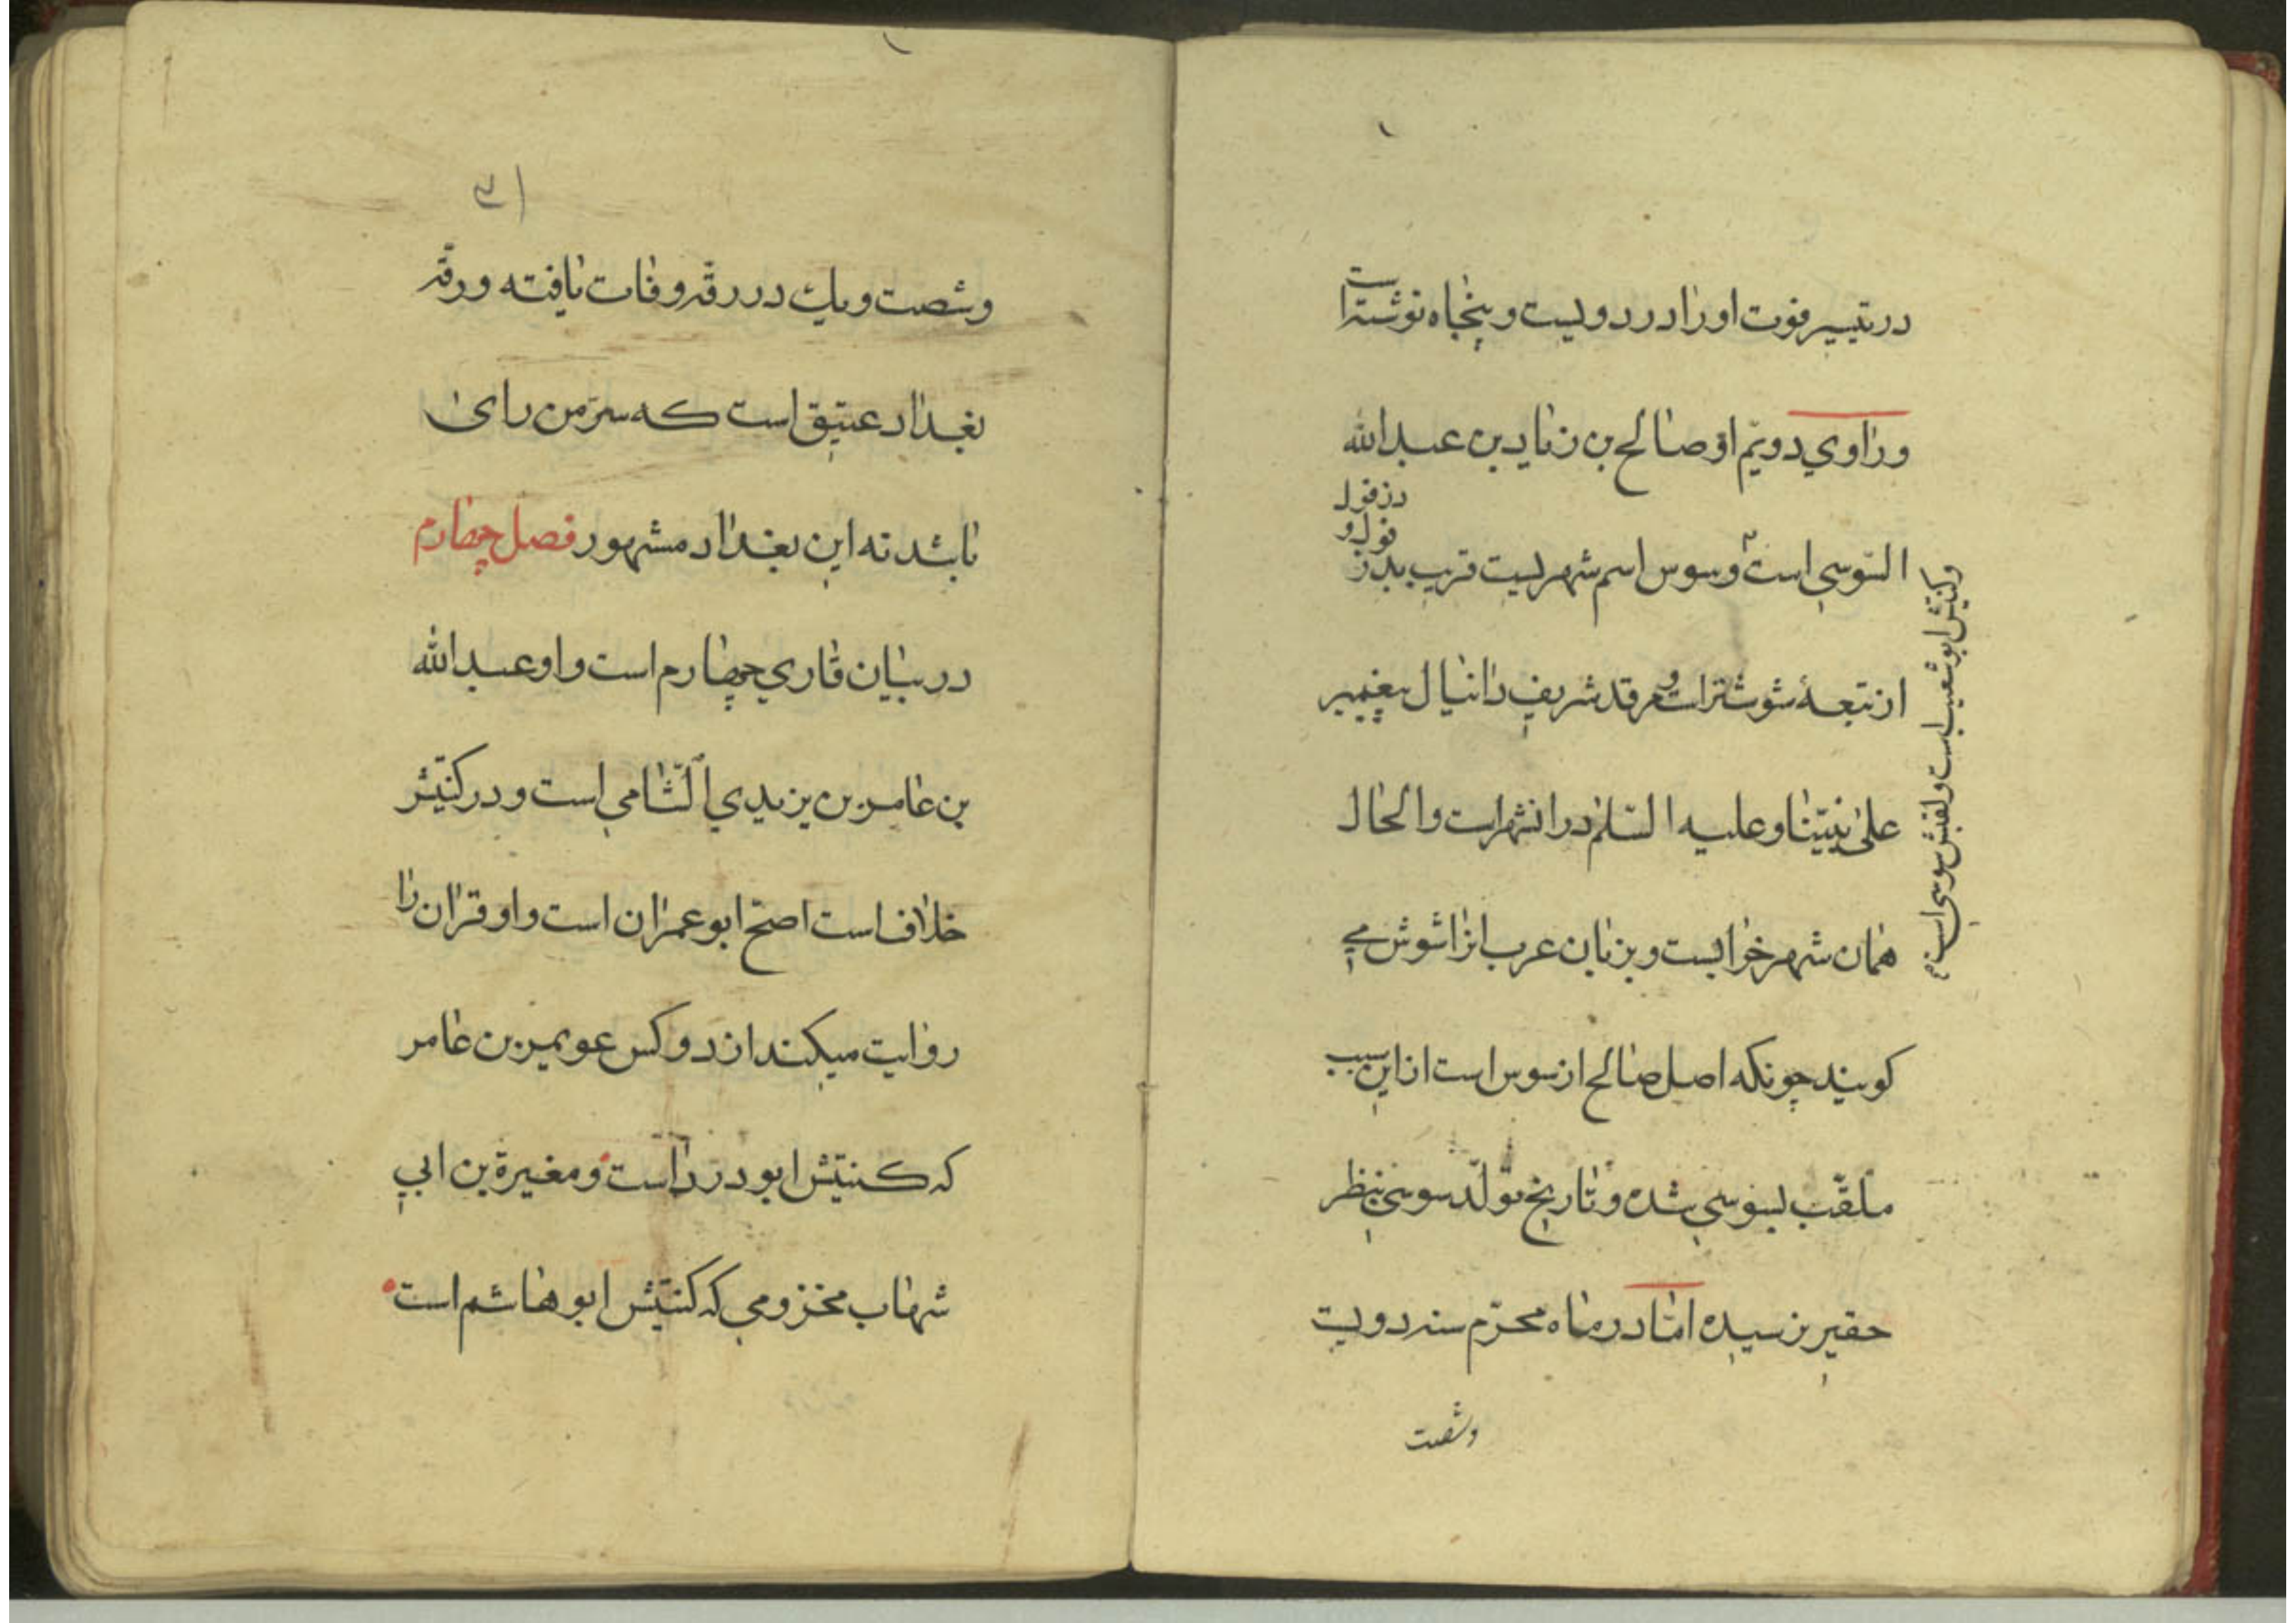 در تیسیر فوت او را در دویست و پنجاه نوشته است
و راوي دویّم او صالح بن زیاد بن عبدالله
السّوسي است و سوس اسم شهریست قریب بدز
دزفول
فول و
از تبعهٔ شوشتر است و مرقد شریف دانیال پیغمبر
علی نبیّنا و علیه السّلم در انشهر است و الحال
همان شهر خرابست و بزبان عرب انرا شوش مي
کویند چونکه اصل صالح از سوس است از این سبب
ملقّب بسوسي شده و تاریخ تولّد سوسي بنظر
حقیر نرسیده امّا در ماه محرّم سنه دویست
وشصت
وکنیتش ابو شعیب است و لقبش سوسي است
۳۱
وشصت ویك در رقّه وفات یافته و رقّه
بغداد عتیق است که سرّ من رای
باشد نه این بغداد مشهور فصل چهارم
در بیان قاري چهارم است و او عبدالله
بن عامر بن یزیدي الشّامي است و در کنیّتش
خلاف است اصحّ ابو عمران است و او قران را
روایت میکند از دو کس عویمر بن عامر
که کنیتش ابو درداست و مغیرة بن ابي
شهاب مخزومي که کنیتش ابو هاشم است